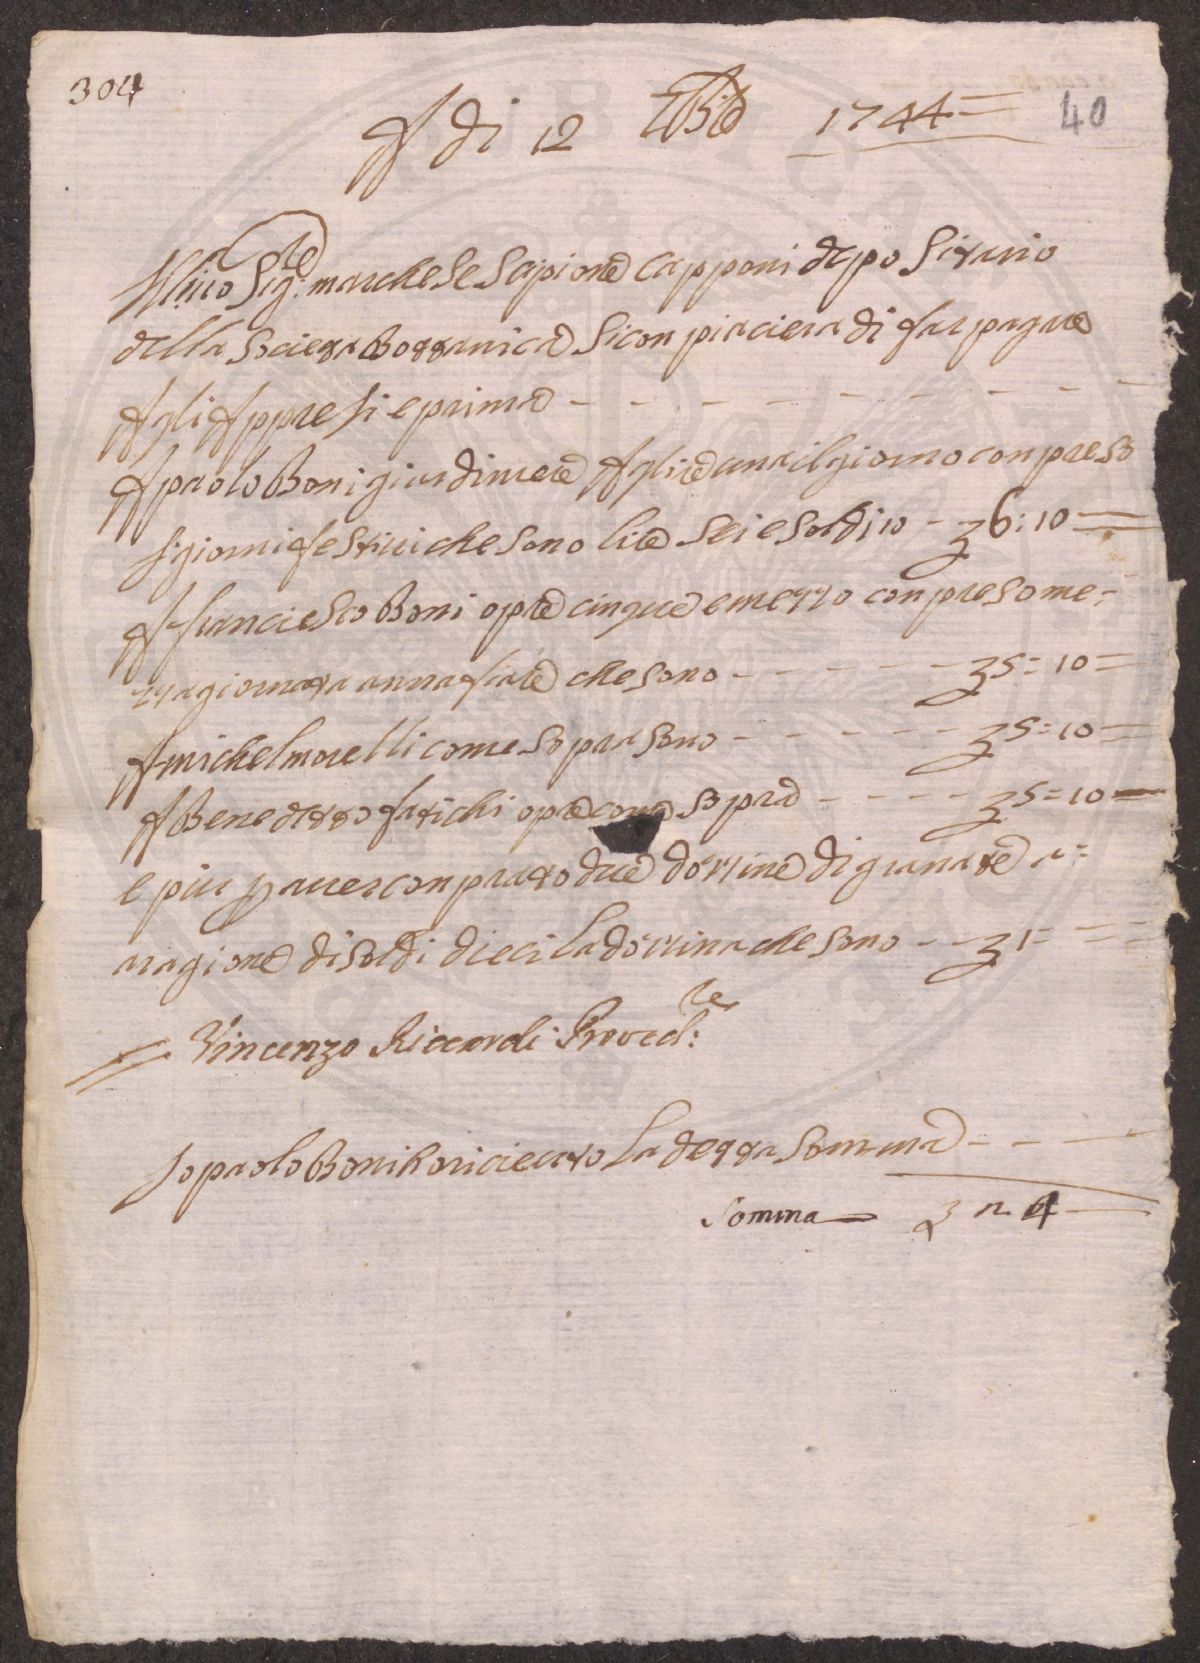 304
A di 12 1744 40
Ill.mo Sig.re marchese Scipione Capponi depositario
della Societa Bottanica si conpiaciera di far pagare
Agli Appresi e prima
A paolo Boni giardiniere A lire una il giorno conpreso
i giorni festivi che sono lire sei e soldi 10 - £ 6: 10
A franciesco Boni opre cinque e mezzo conpreso me=
zza giornata che sono £ 5=10
A michel morelli come sopra sono £ 5=10
A Benedetto fatichi opre come sopra £ 5=10
e piu p aver conprato due dozzine di granate a
ragione di soldi dieci la dozzina che sono £ 1=
Vincenzo Riccardi Proved.re
Io paolo Boni ho riceuto la detta somma
Somma £ 24